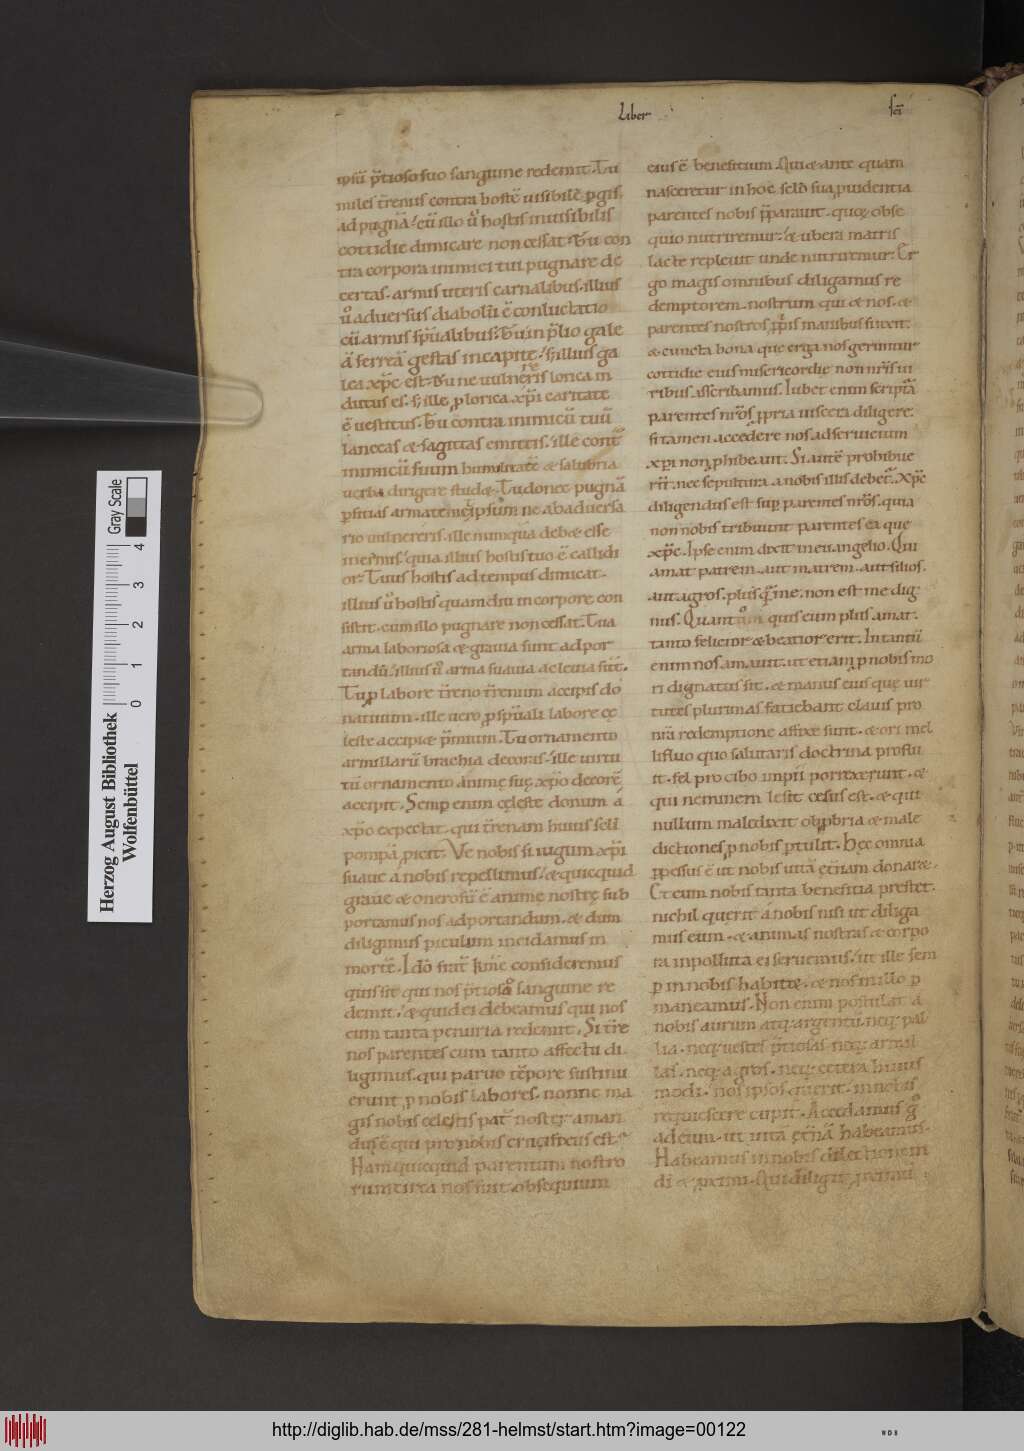 Liber
sci
ipsū p̄tioso suo sanguine redemit. Tu
miles t̄renus contra hostē uisibilē pgis.
ad pugnā. cū illo ū hostis inuisibilis
cottidie dimicare non cessat. Tu con
tra corpora inimici tui pugnare de
certas. armis uteris carnalibus. illius
ū aduersus diabolū ē conluctatio
cū armis sp̄ualibus. Tu in p̄lio gale
ā ferreā gestas in capite. s; illius ga
lea xp̄c est. Tu ne uulneris lorica in
dutus es. s; ille p lorica xp̄i caritate
ē uestitus. Tu contra inimicū tuū
lanceas & sagittas emittis. ille cont
inimicū suum humilitatē & salubria
uerba dirigere stud&. Tu donec pugnā
rio uulnereris. ille numquā deb& esse
inermis. quia illius hostis tuo ē callidi
or. Tuus hostis ad tempus dimicat.
illius ū hostis quamdiu in corpore con
sistit. cum illo pugnare non cessat. Tua
arma laboriosa & grauia sunt ad por
tandū. illius ū arma suauia ac leuia sūt.
Tu p labore t̄reno t̄renum accipis do
natiuum. ille uero p sp̄uali labore cę
leste accipi& p̄mium. Tu ornamento
armillarū brachia decoras. ille uirtu
tū ornamento animę suę xp̄o decorē
accipit. Semp enim cęleste donum a
xp̄o expectat. qui t̄renam huius sc̄li
pompā picit. Ve nobis si iugum xp̄i
suaue a nobis repellimus. & quicquid
graue & onerosū ē animę nostrę sub
portamus nos ad portandum. & dum
diligimus piculum incidamus in
mortē. Ido frat̄ km̄e consideremus
quis sit qui nos p̄tioso sanguine re
demit. & quid ei debeamus qui nos
cum tanta penuria redemit. Si t̄re
nos parentes cum tanto affectu di
ligimus. qui paruo tēpore sustinu
erunt p nobis labores. nonne ma
gis nobis celestis pat̄ noster aman
dus ē qui pro nobis crucifixus est.
Nam quicquid parentum nostro
rum circa nos fuit obsequium
eius ē benefitium. Qui & ante quam
nasceretur in hoc sclo sua puidentia
parentes nobis p̄parauit. quoꝝ obse
quio nutriremur. & ubera matris
lacte repleuit unde nutriremur. Er
go magis omnibus diligamus re
demptorem nostrum qui & nos. &
parentes nostros ppriis manibus finxit.
& cuncta bona que erga nos geruntur
cottidie eius misericordie non nr̄is ui
ribus asscribamus. Iubet enim scriptā
parentes nr̄os ppria uiscera diligere.
si tamen accedere nos ad seruicium
xp̄i non phibeaunt. Si autē prohibue
rīt. nec sepultura a nobis illis deber. Xp̄c
diligendus est sup parentes nr̄os. quia
non nobis tribuunt parentes ea que
xp̄c. Ipse enim dixit in euangelio. Qui
amat patrem. aut matrem. aut filios.
aut agros. plus quā me. non est me dig
nus. quis eum plus amat.
tanto felicior & beatior erit. In tantū
enim nos amauit. ut etiam p nobis mo
ri dignatus sit. & manus eius quę uir
tutes plurimas faciebant clauis pro
nr̄a redemptione affixe sunt. & ori mel
lifluo quo salutaris doctrina proflu
it. fel pro cibo impii porrexerunt. &
qui neminem lesit cesus est. & qui
nullum maledixit obp̄bria & male
dictiones p nobis p̄tulit. Hęc omnia
ppessus ē ut nobis uitā ęt̄nam donar&.
Et cum nobis tanta benefitia prestet.
nichil querit a nobis nisi ut diliga
mus eum. & animas nostras & corpo
ra inpolluta ei seruemus. ut ille sem
p in nobis habit&. & nos in illo p
maneamus. Non enim postulat a
nobis aurum atq; argentū. neq; pal
lia. neq; uestes p̄tiosas neq; armil
las. neq; agros. neq; cetera huius
modi. nos ipsos querit. in nobis
requiescere cupit. Accedamus g
ad eum. ut uitā ęt̄nā habeamus.
Habeamus in nobis dilectionem
di & pximi. Qui diligit pximū
Herzog August Bibliothek
Wolfenbüttel
0 1 2 3 4
Gray Scale
http://diglib.hab.de/mss/281-helmst/start.htm?image=00122